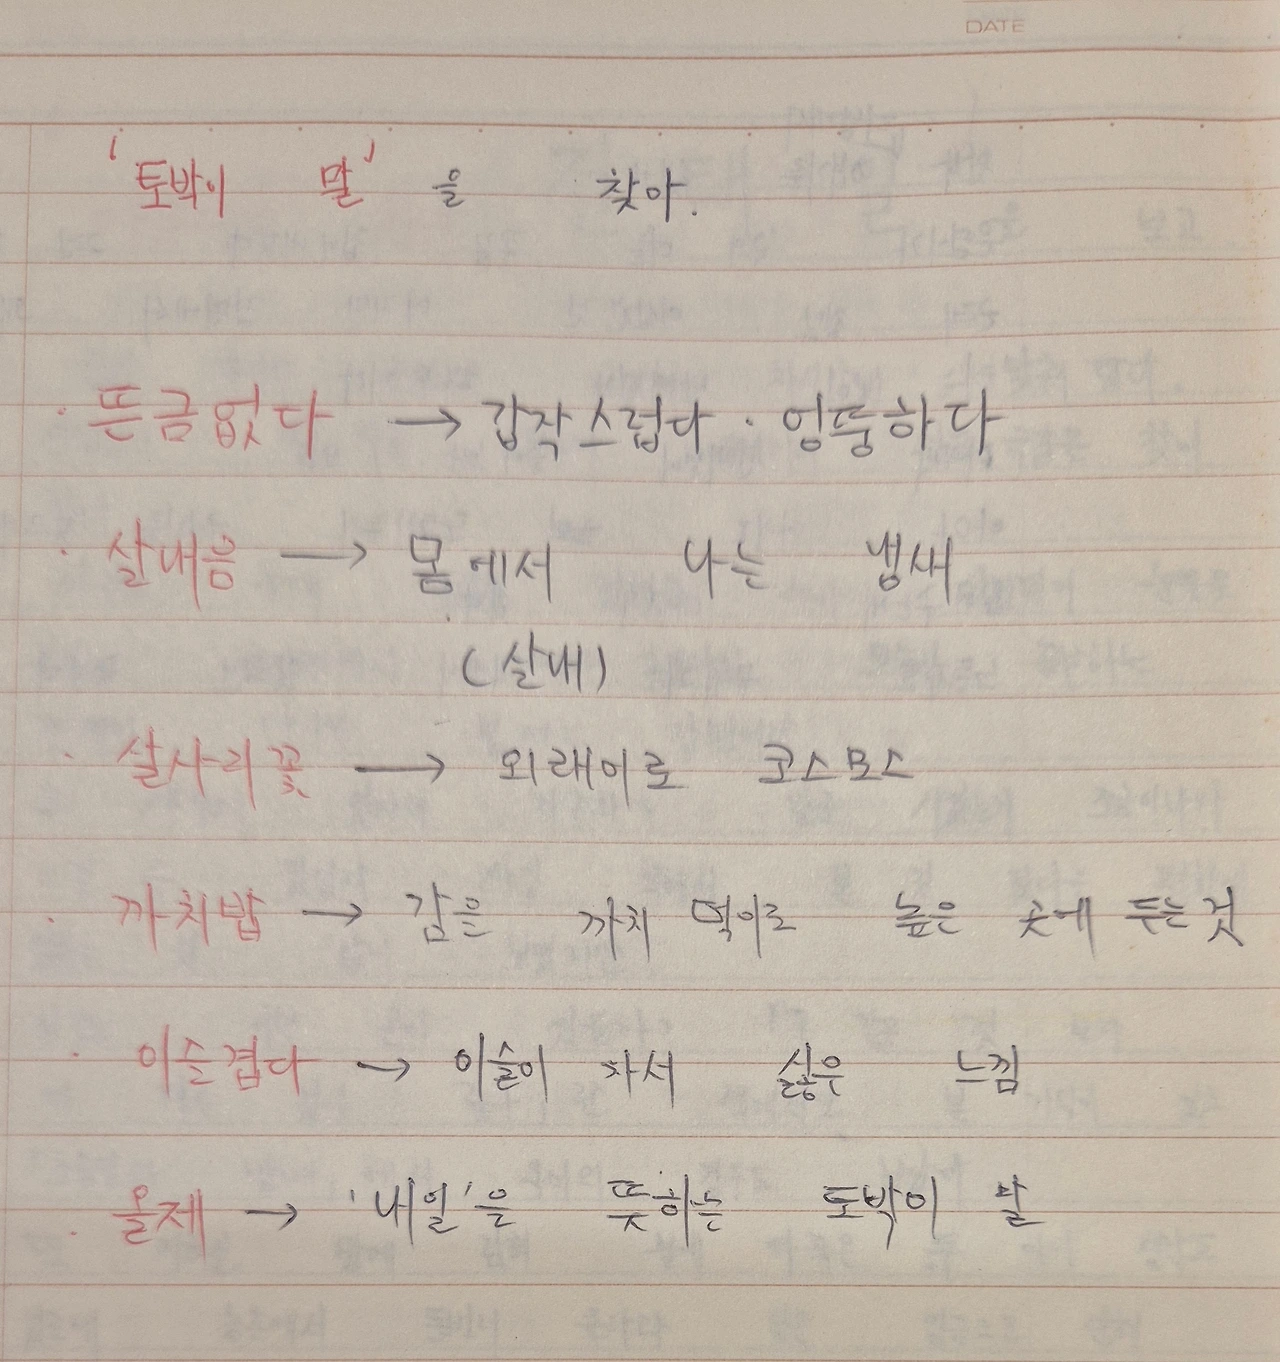 DATE
'토박이 말'을 찾아.
· 뜬금없다 → 갑작스럽다 · 엉뚱하다
· 살내음 → 몸에서 나는 냄새
(살내)
· 살사리꽃 → 외래어로 코스모스
· 까치밥 → 감을 까치 먹이로 높은 곳에 두는 것
· 이슬겹다 → 이슬이 가서 싫은 느낌
· 올제 → '내일'을 뜻하는 토박이 말